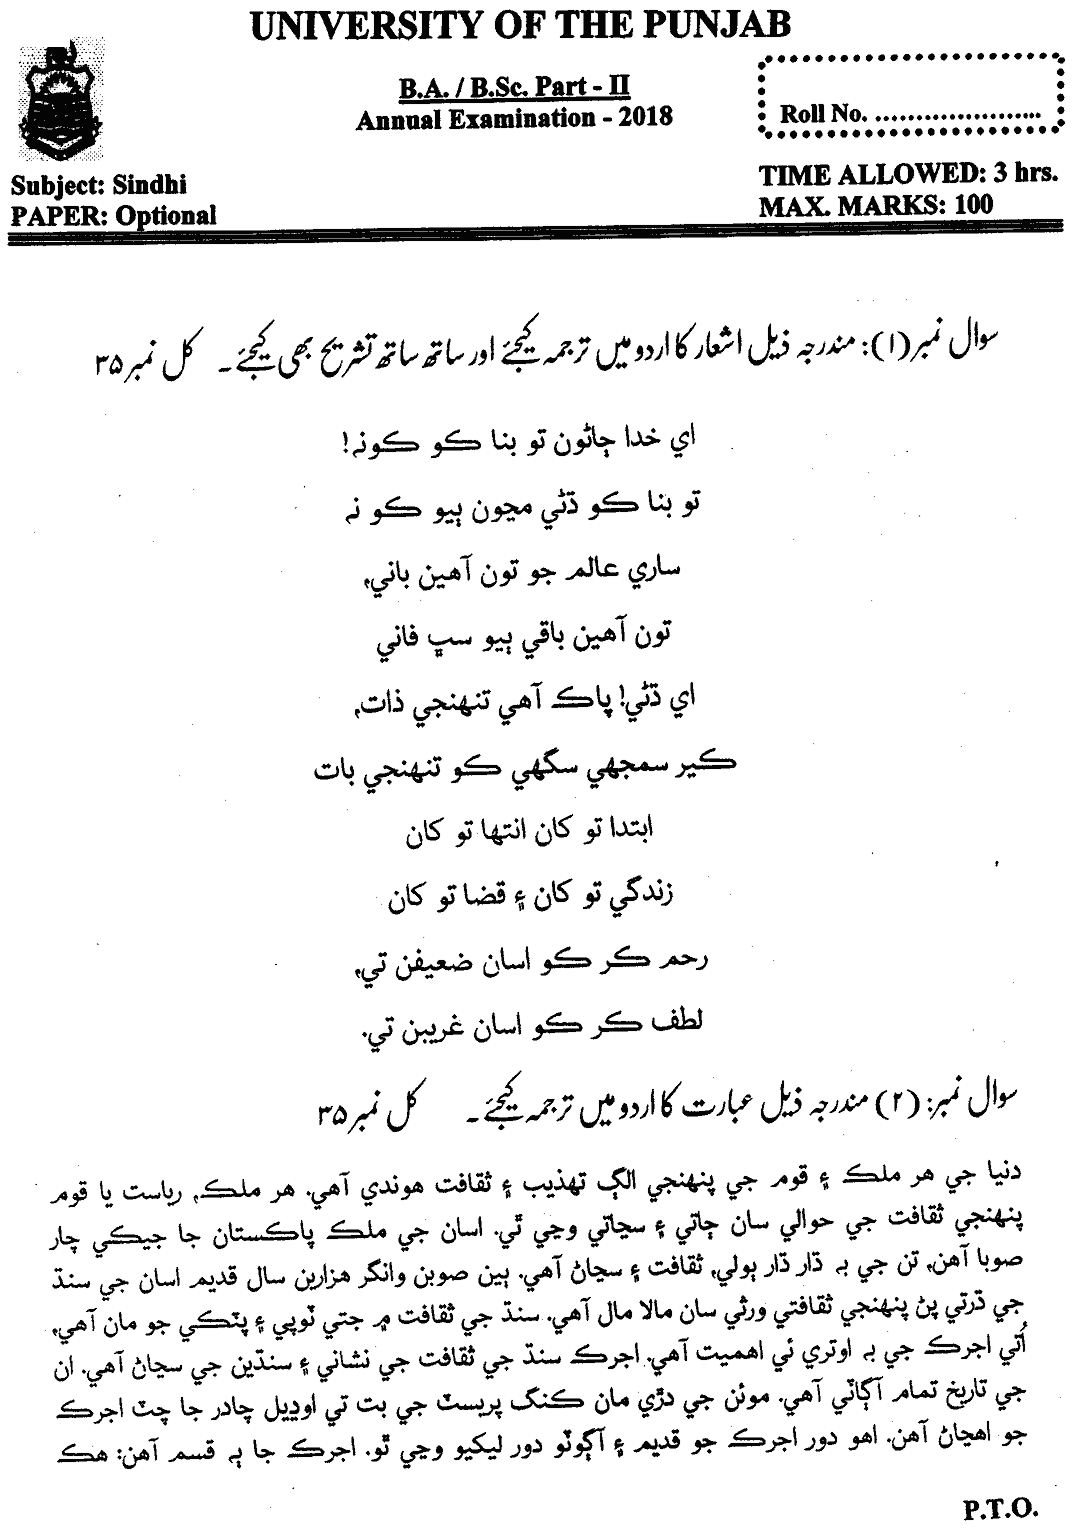 UNIVERSITY OF THE PUNJAB
B.A. / B.Sc. Part - II
Annual Examination - 2018
Roll No. ........................
Subject: Sindhi
PAPER: Optional
TIME ALLOWED: 3 hrs.
MAX. MARKS: 100
سوال نمبر(۱): مندرجہ ذیل اشعار کا اردو میں ترجمہ کیجئے اور ساتھ ساتھ تشریح بھی کیجئے۔ کل نمبر ۳۵
اي خدا ڄاڻون تو بنا ڪو ڪونہ!
تو بنا ڪو ڌڻي مڃون ٻيو ڪو نہ
ساري عالم جو تون آهين باني،
تون آهين باقي ٻيو سڀ فاني
اي ڌڻي! پاڪ آهي تنهنجي ذات،
ڪير سمجهي سگهي ڪو تنهنجي بات
ابتدا تو کان انتها تو کان
زندگي تو کان ۽ قضا تو کان
رحم ڪر ڪو اسان ضعيفن تي،
لطف ڪر ڪو اسان غريبن تي.
سوال نمبر: (۲) مندرجہ ذیل عبارت کا اردو میں ترجمہ کیجئے۔ کل نمبر ۳۵
دنيا جي هر ملڪ ۽ قوم جي پنهنجي الڳ تهذيب ۽ ثقافت هوندي آهي. هر ملڪ، رياست يا قوم
پنهنجي ثقافت جي حوالي سان ڄاتي ۽ سڃاتي وڃي ٿي. اسان جي ملڪ پاڪستان جا جيڪي چار
صوبا آهن، تن جي بہ ڌار ڌار ٻولي، ثقافت ۽ سڃاڻ آهي. ٻين صوبن وانگر هزارين سال قديم اسان جي سنڌ
جي ڌرتي پڻ پنهنجي ثقافتي ورثي سان مالا مال آهي. سنڌ جي ثقافت ۾ جتي ٽوپي ۽ پٽڪي جو مان آهي،
اُتي اجرڪ جي بہ اوتري ئي اهميت آهي. اجرڪ سنڌ جي ثقافت جي نشاني ۽ سنڌين جي سڃاڻ آهي. ان
جي تاريخ تمام آڳاٽي آهي. موئن جي دڙي مان ڪنگ پريسٽ جي بت تي اوڍيل چادر جا چٽ اجرڪ
جو اهڃاڻ آهن. اهو دور اجرڪ جو قديم ۽ آڳوٽو دور ليکيو وڃي ٿو. اجرڪ جا ٻہ قسم آهن: هڪ
P.T.O.